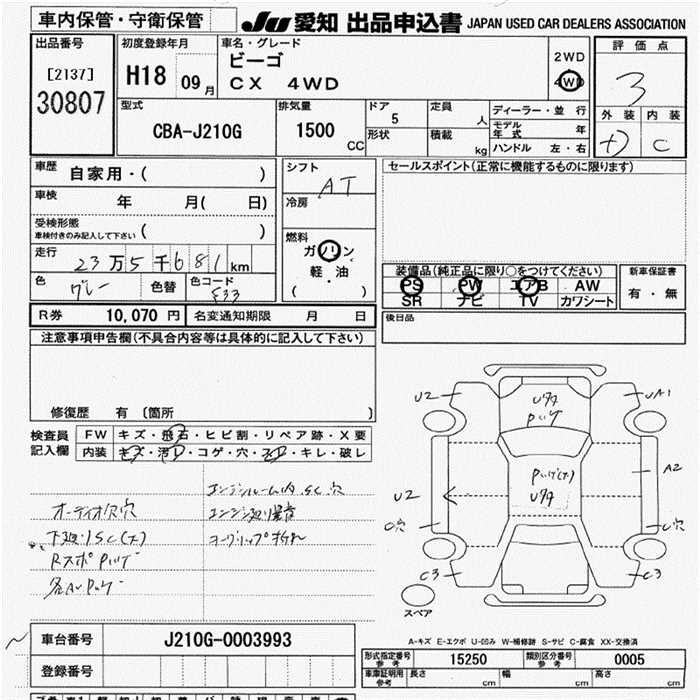 車内保管・守衛保管
JU 愛知 出品申込書 JAPAN USED CAR DEALERS ASSOCIATION
出品番号
[2137]
30807
初度登録年月
H18 09月
車名・グレード
ビーゴ
CX 4WD
2WD
4WD
評価点
3
外装 内装
C
型式
CBA-J210G
排気量
1500 CC
ドア
5
形状
定員
人
積載
kg
ディーラー・並行
モデル年式 年
ハンドル 左・右
車歴
自家用・( )
車検 年 月( 日)
受検形態
車検付きのみ記入して下さい ( )
走行
23万5千681km
色
グレー
色替
色コード
シフト
AT
冷房
燃料
ガソリン
軽・油
( )
セールスポイント(正常に機能するものに限ります)
装備品(純正品に限り○をつけてください)
PS PW エアB AW
SR ナビ TV カワシート
新車保証書
有・無
後日品
R券 10,070 円 名変通知期限 月 日
注意事項申告欄(不具合内容等は具体的に記入して下さい)
修復歴 有 〔箇所 〕
検査員記入欄
FW キズ・飛石・ヒビ割・リペア跡・X要
内装 キズ・汚レ・コゲ・穴・スレ・キレ・破レ
エンジンルーム内 SC 穴
オーディオ穴
下廻りSC(大)
各AUパップ
U2
UA1
A2
U2
U穴
C3
C3
スペア
A-キズ E-エクボ U-凹み W-補修跡 S-サビ C-腐食 XX-交換済
車台番号 J210G-0003993
登録番号
形式指定番号 参考 15250 類別区分番号 参考 0005
車庫証明用 参考 長さ cm 幅 cm 高さ cm